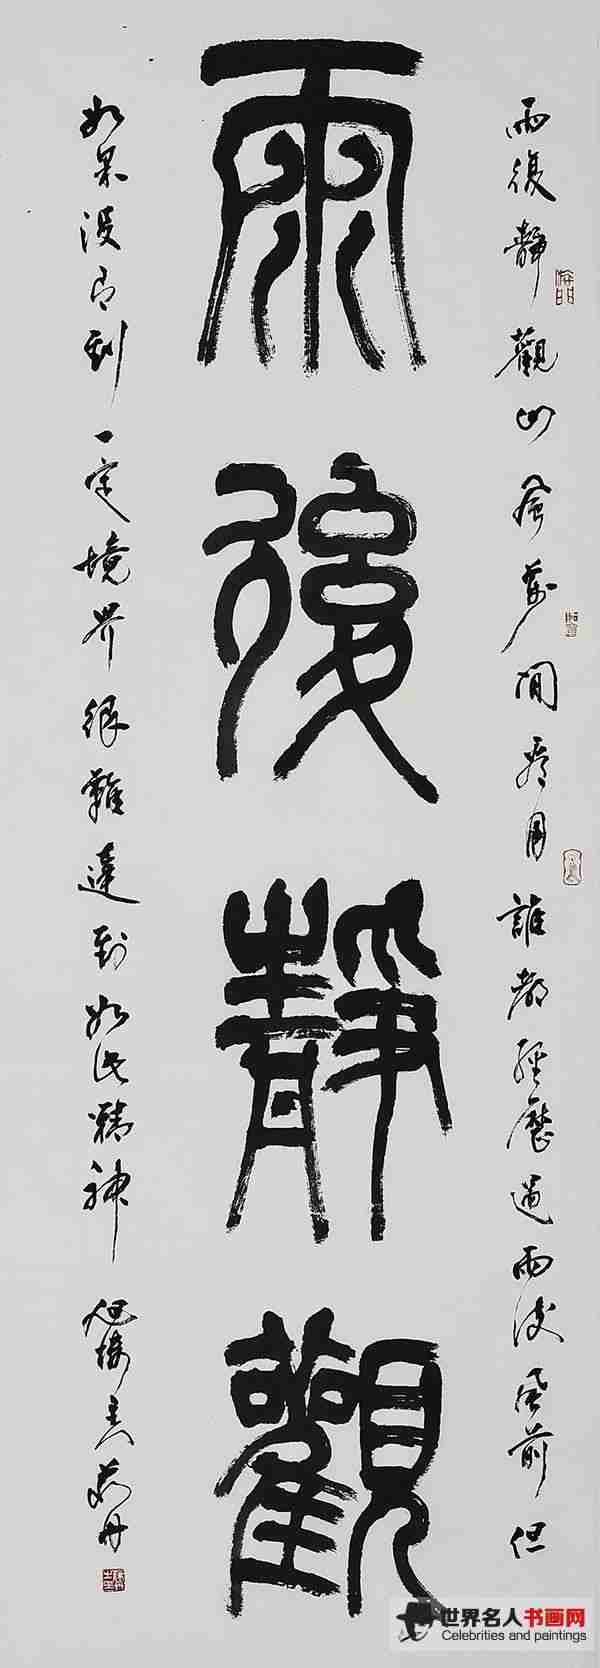 雨後靜觀
雨後靜觀山 風前閒看月 誰都經歷過雨後風前 但
如果沒有到一定境界 很難達到如此精神
世界名人书画网
Celebrities and paintings